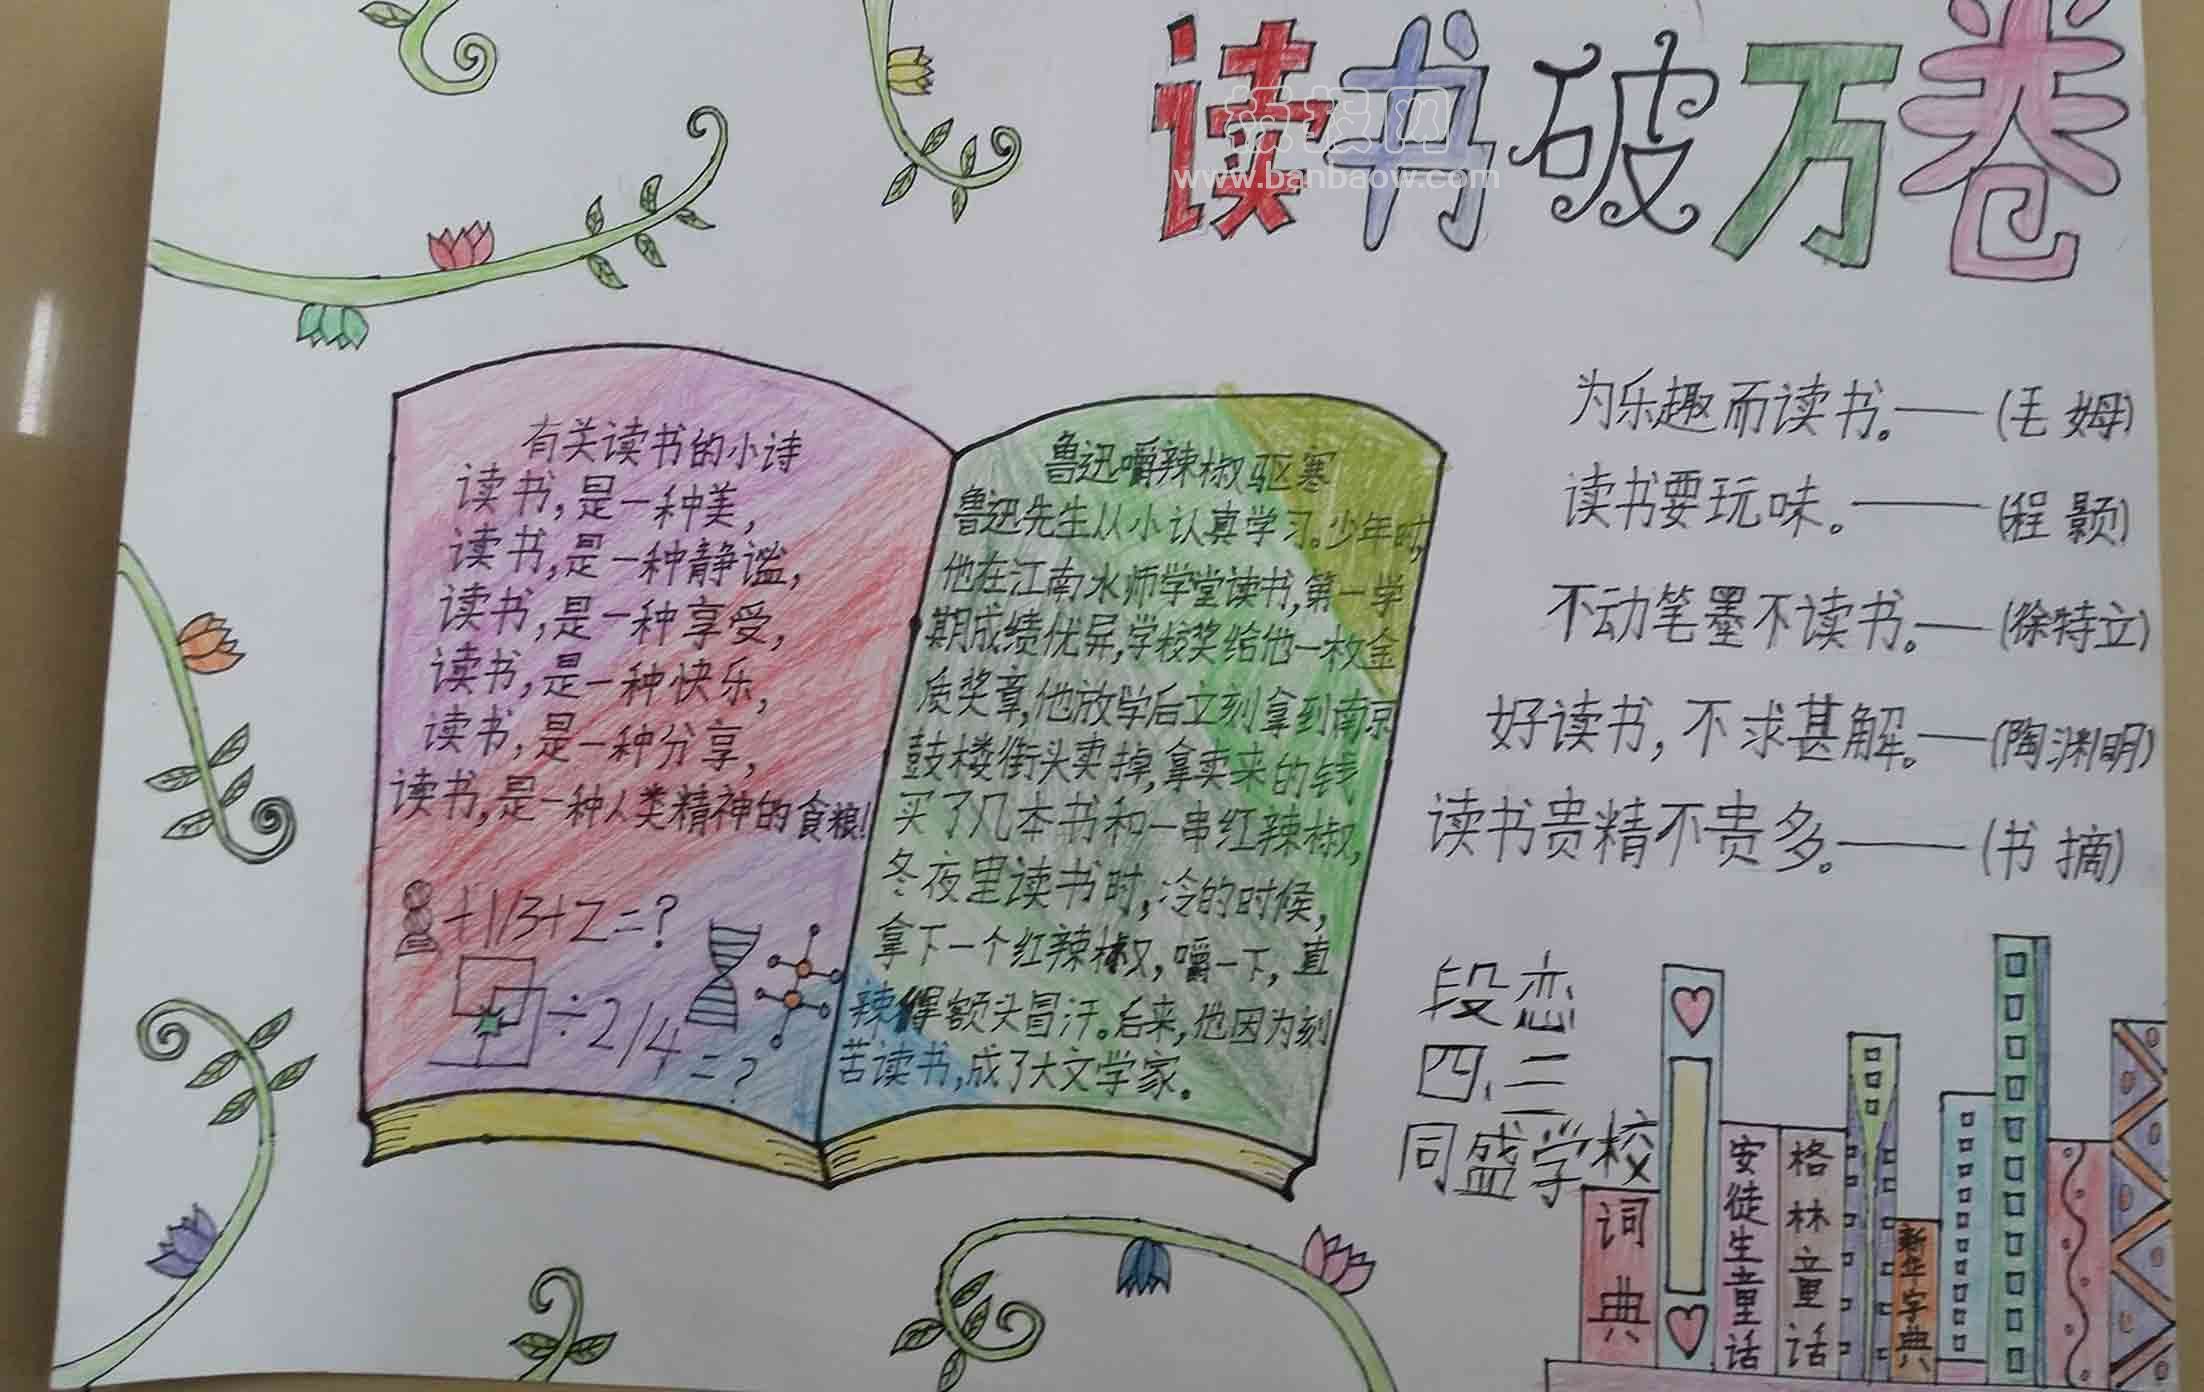 读书破万卷
板报网
www.banbaow.com
有关读书的小诗
读书,是一种美,
读书,是一种静谧,
读书,是一种享受,
读书,是一种快乐,
读书,是一种分享,
读书,是一种人类精神的食粮!
+1/3+2=?
÷2/4=?
鲁迅嚼辣椒驱寒
鲁迅先生从小认真学习。少年时,
他在江南水师学堂读书,第一学
期成绩优异,学校奖给他一枚金
质奖章,他放学后立刻拿到南京
鼓楼街头卖掉,拿卖来的钱
买了几本书和一串红辣椒,
冬夜里读书时,冷的时候,
拿下一个红辣椒,嚼一下,直
辣得额头冒汗。后来,他因为刻
苦读书,成了大文学家。
为乐趣而读书。——(毛姆)
读书要玩味。——(程颢)
不动笔墨不读书。——(徐特立)
好读书,不求甚解。——(陶渊明)
读书贵精不贵多。——(书摘)
段恋
四、三
同盛学校
词典
安徒生童话
格林童话
新华字典